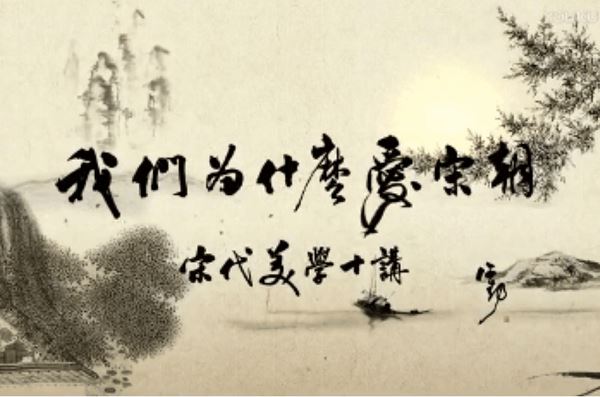 我們为什麼愛宋朝
宋代美學十講